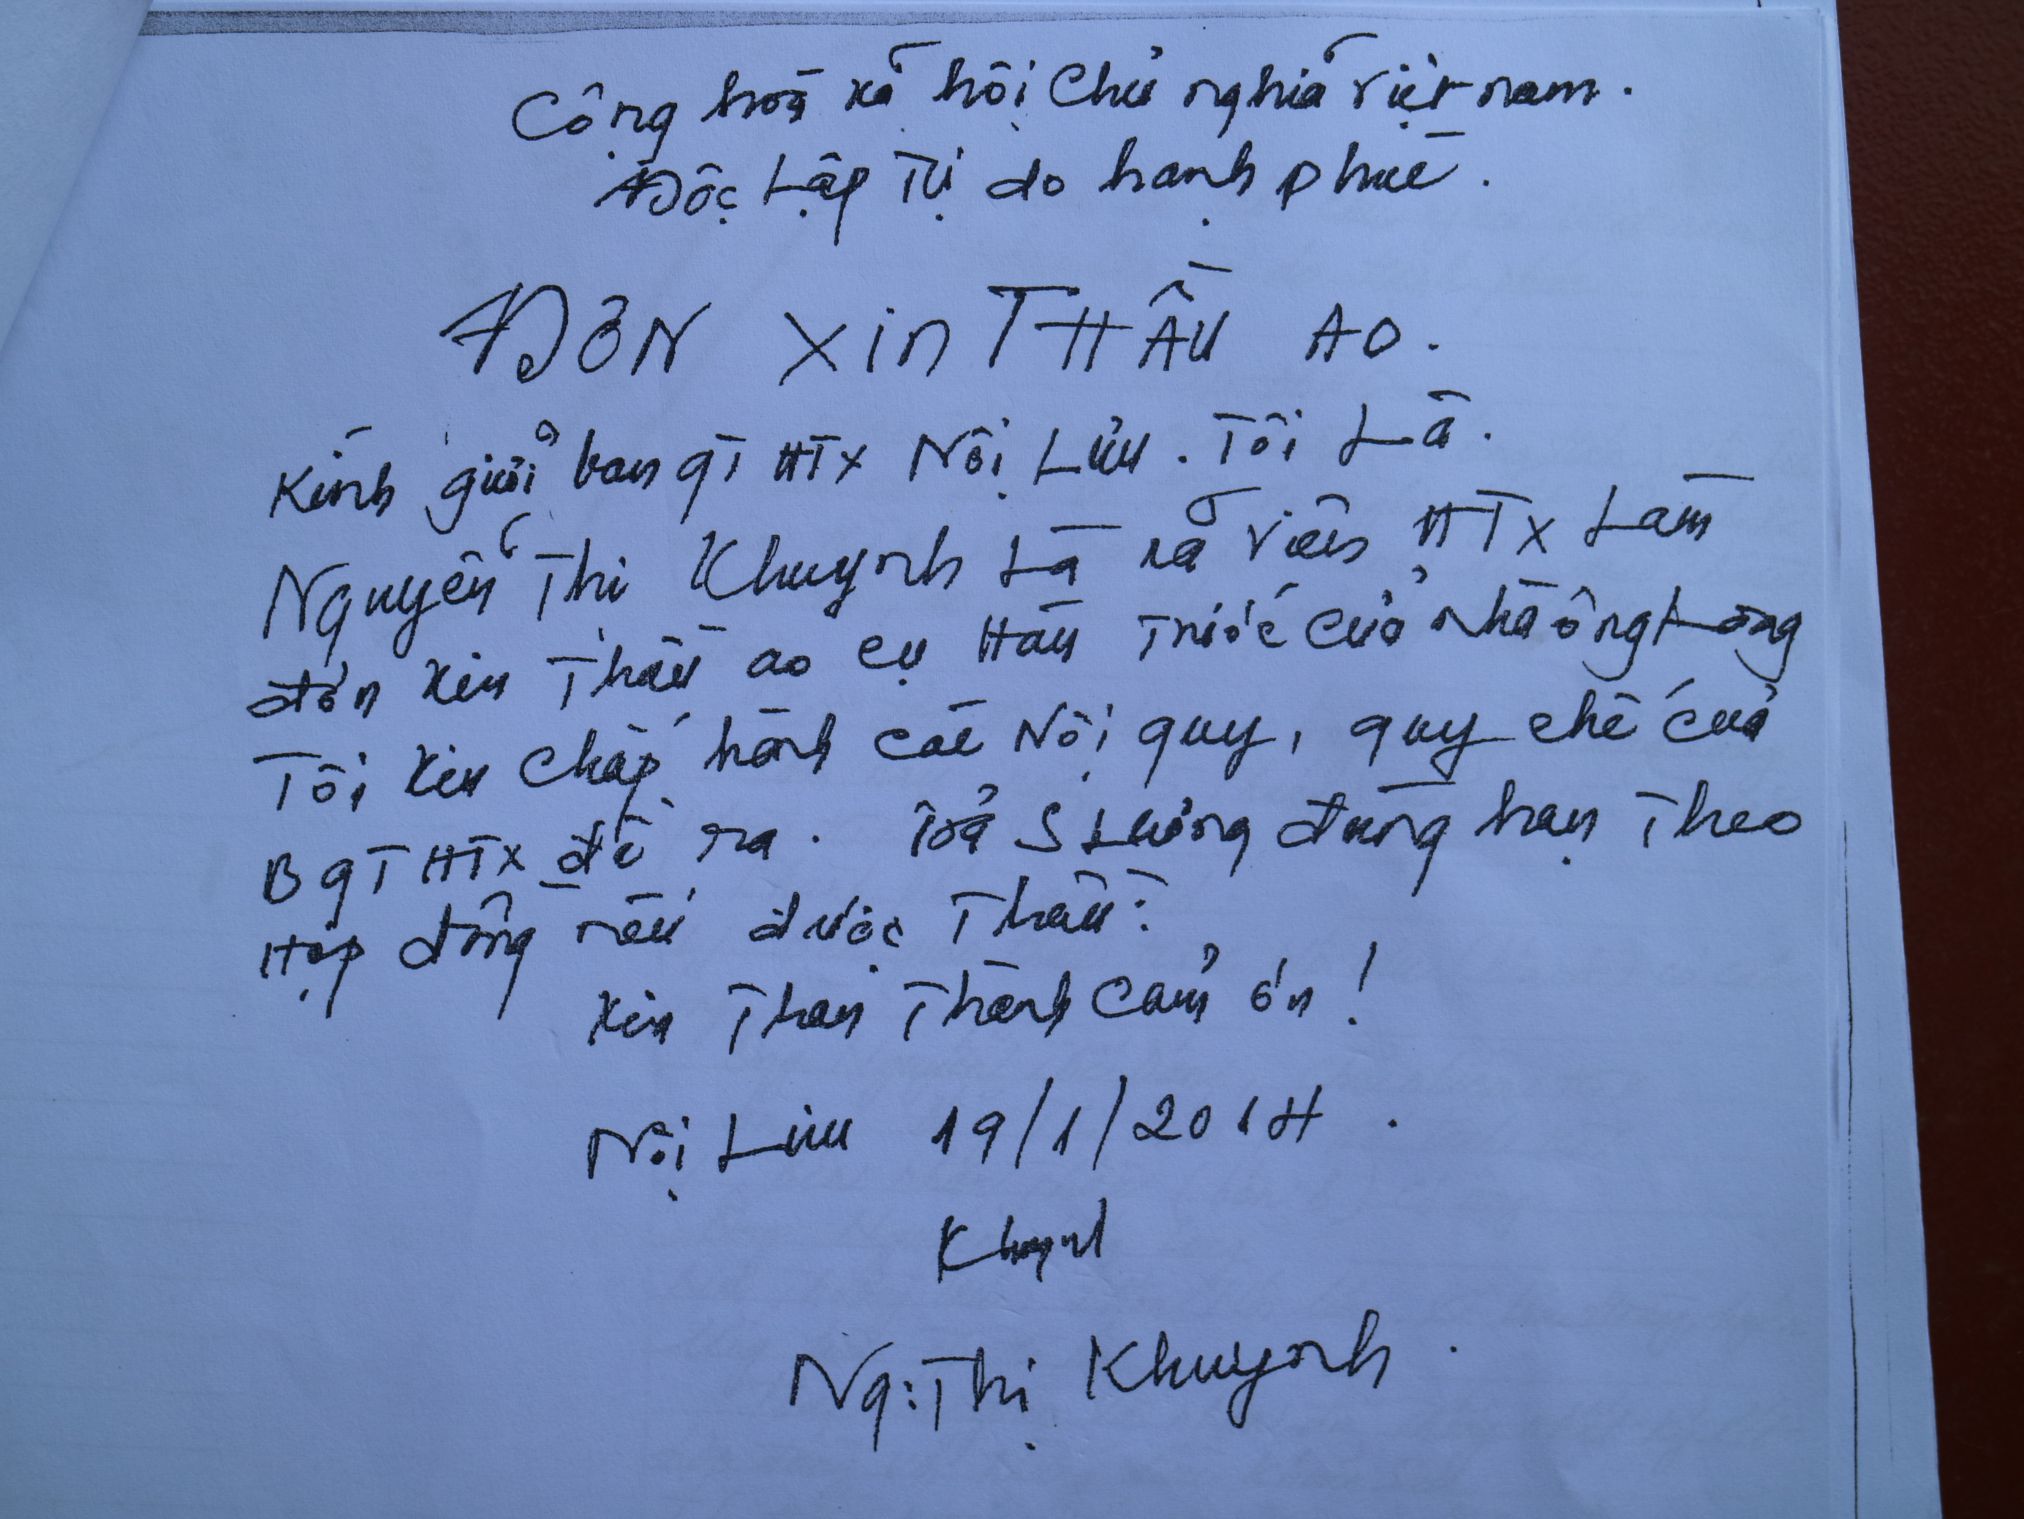 Cộng hoà xã hội chủ nghĩa việt nam.
Độc Lập Tự do hạnh phúc.
ĐƠN Xin THẦU AO.
Kính gửi ban qT HTX Nội Lưu. Tôi Là.
Nguyễn Thị Khuynh Là xã viên HTX Làm
đơn xin Thầu ao cụ Hàu Trước cửa nhà ông Long
Tôi xin chấp hành các Nội quy, quy chế của
BqT HTX đề ra. Trả S Lượng đúng hạn Theo
Hợp đồng nếu được Thầu:
Xin Thân Thành Cảm ơn!
Nội Lưu 19/1/2014.
Khuynh
Ng: Thị Khuynh.